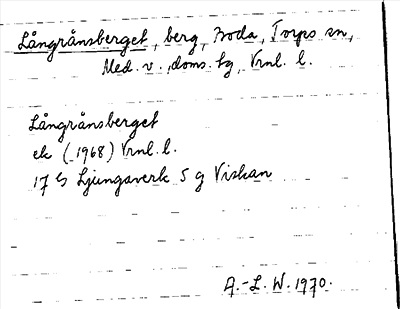 Långrånsberget, berg, Boda, Torps sn,
Med. v. doms. tg, Vrnl. l.
Långrånsberget
ek (1968) Vrnl. l.
17 G Ljungaverk 5 g Viskan
A.-L. W. 1970.